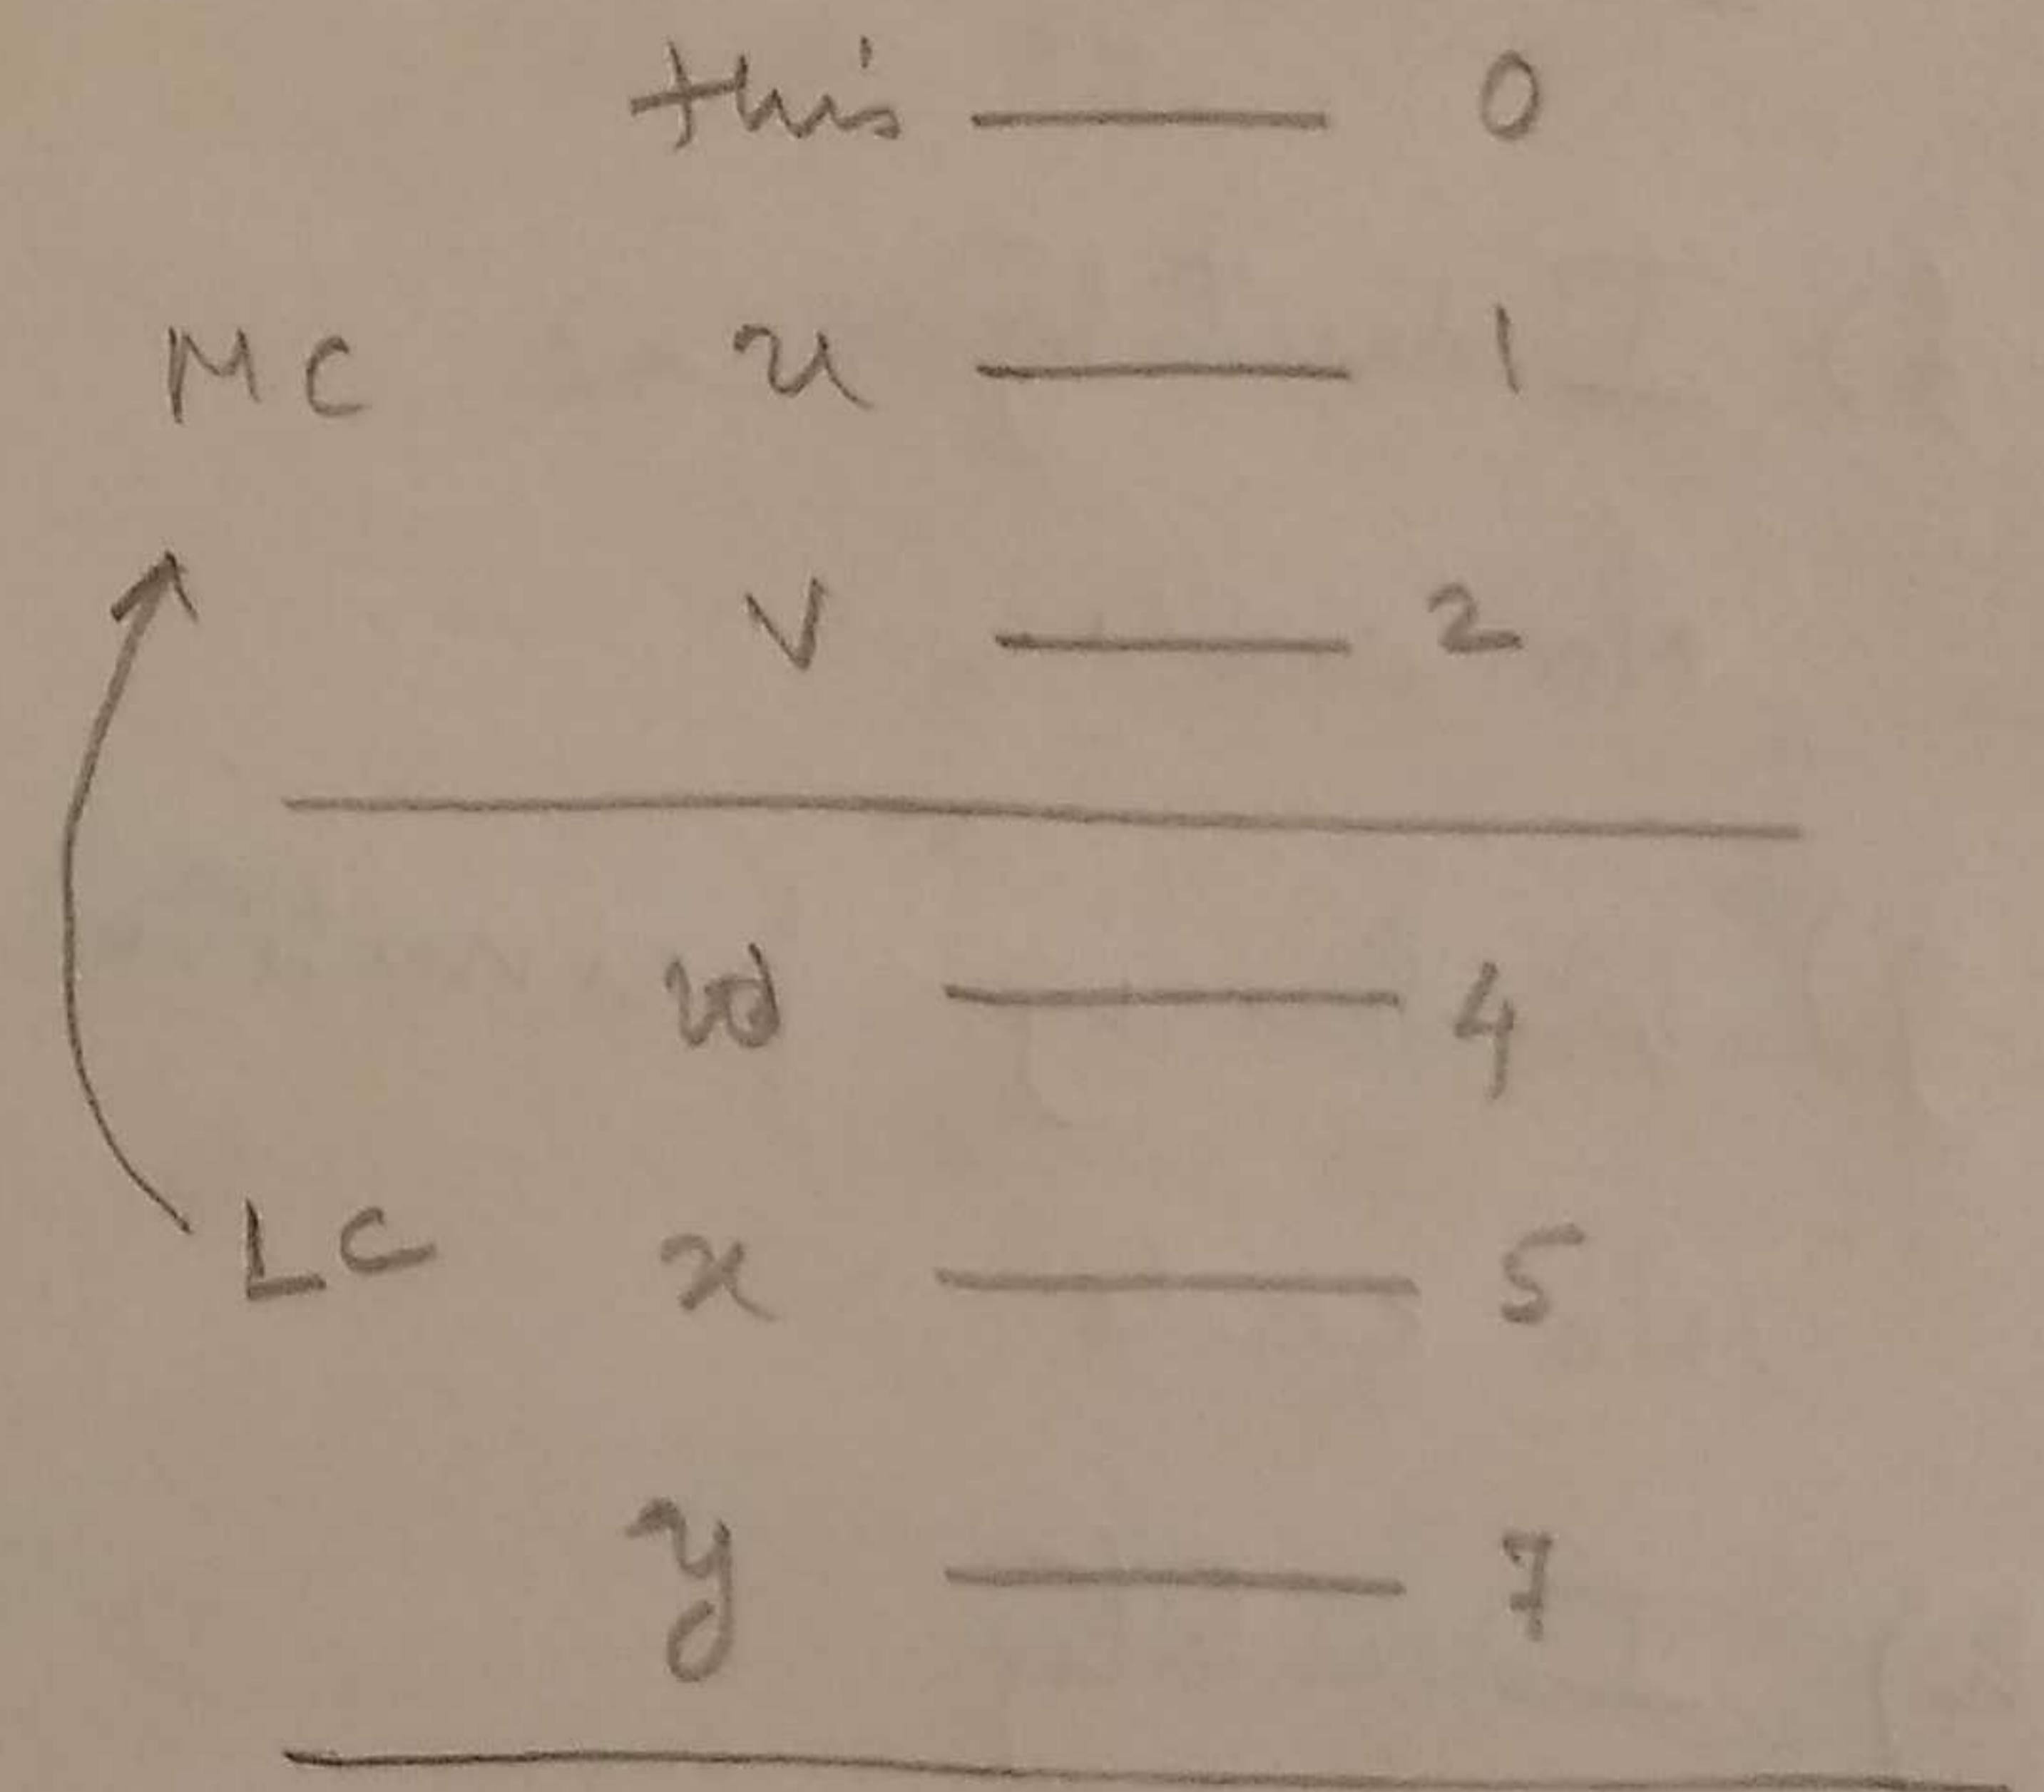 this — 0
MC u — 1
v — 2
w — 4
LC x — 5
y — 7